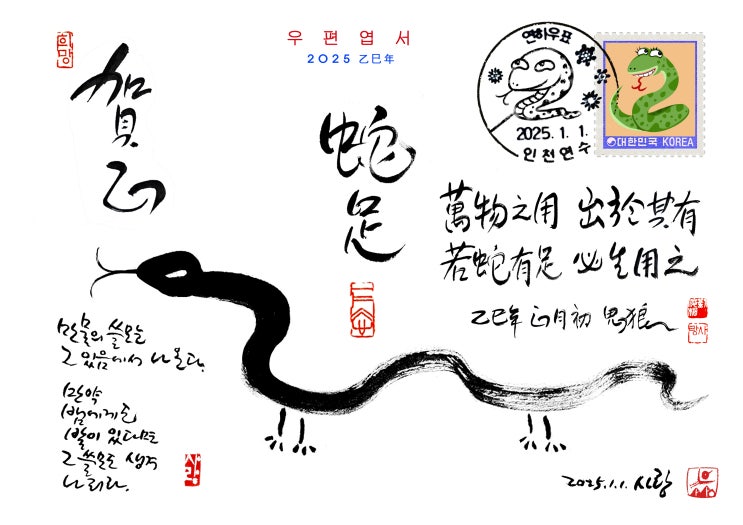 희망
우편엽서
2025 乙巳年
연하우표
2025. 1. 1.
인천연수
대한민국 KOREA
賀正
蛇足
萬物之用 出於其有
若蛇有足 必生用之
乙巳年 正月初 思狼
만물의 쓸모는
그 있음에서 나온다.
만약
뱀에게도
발이 있다면
그 쓸모도 생겨
나리라.
사랑
2025.1.1. 시랑